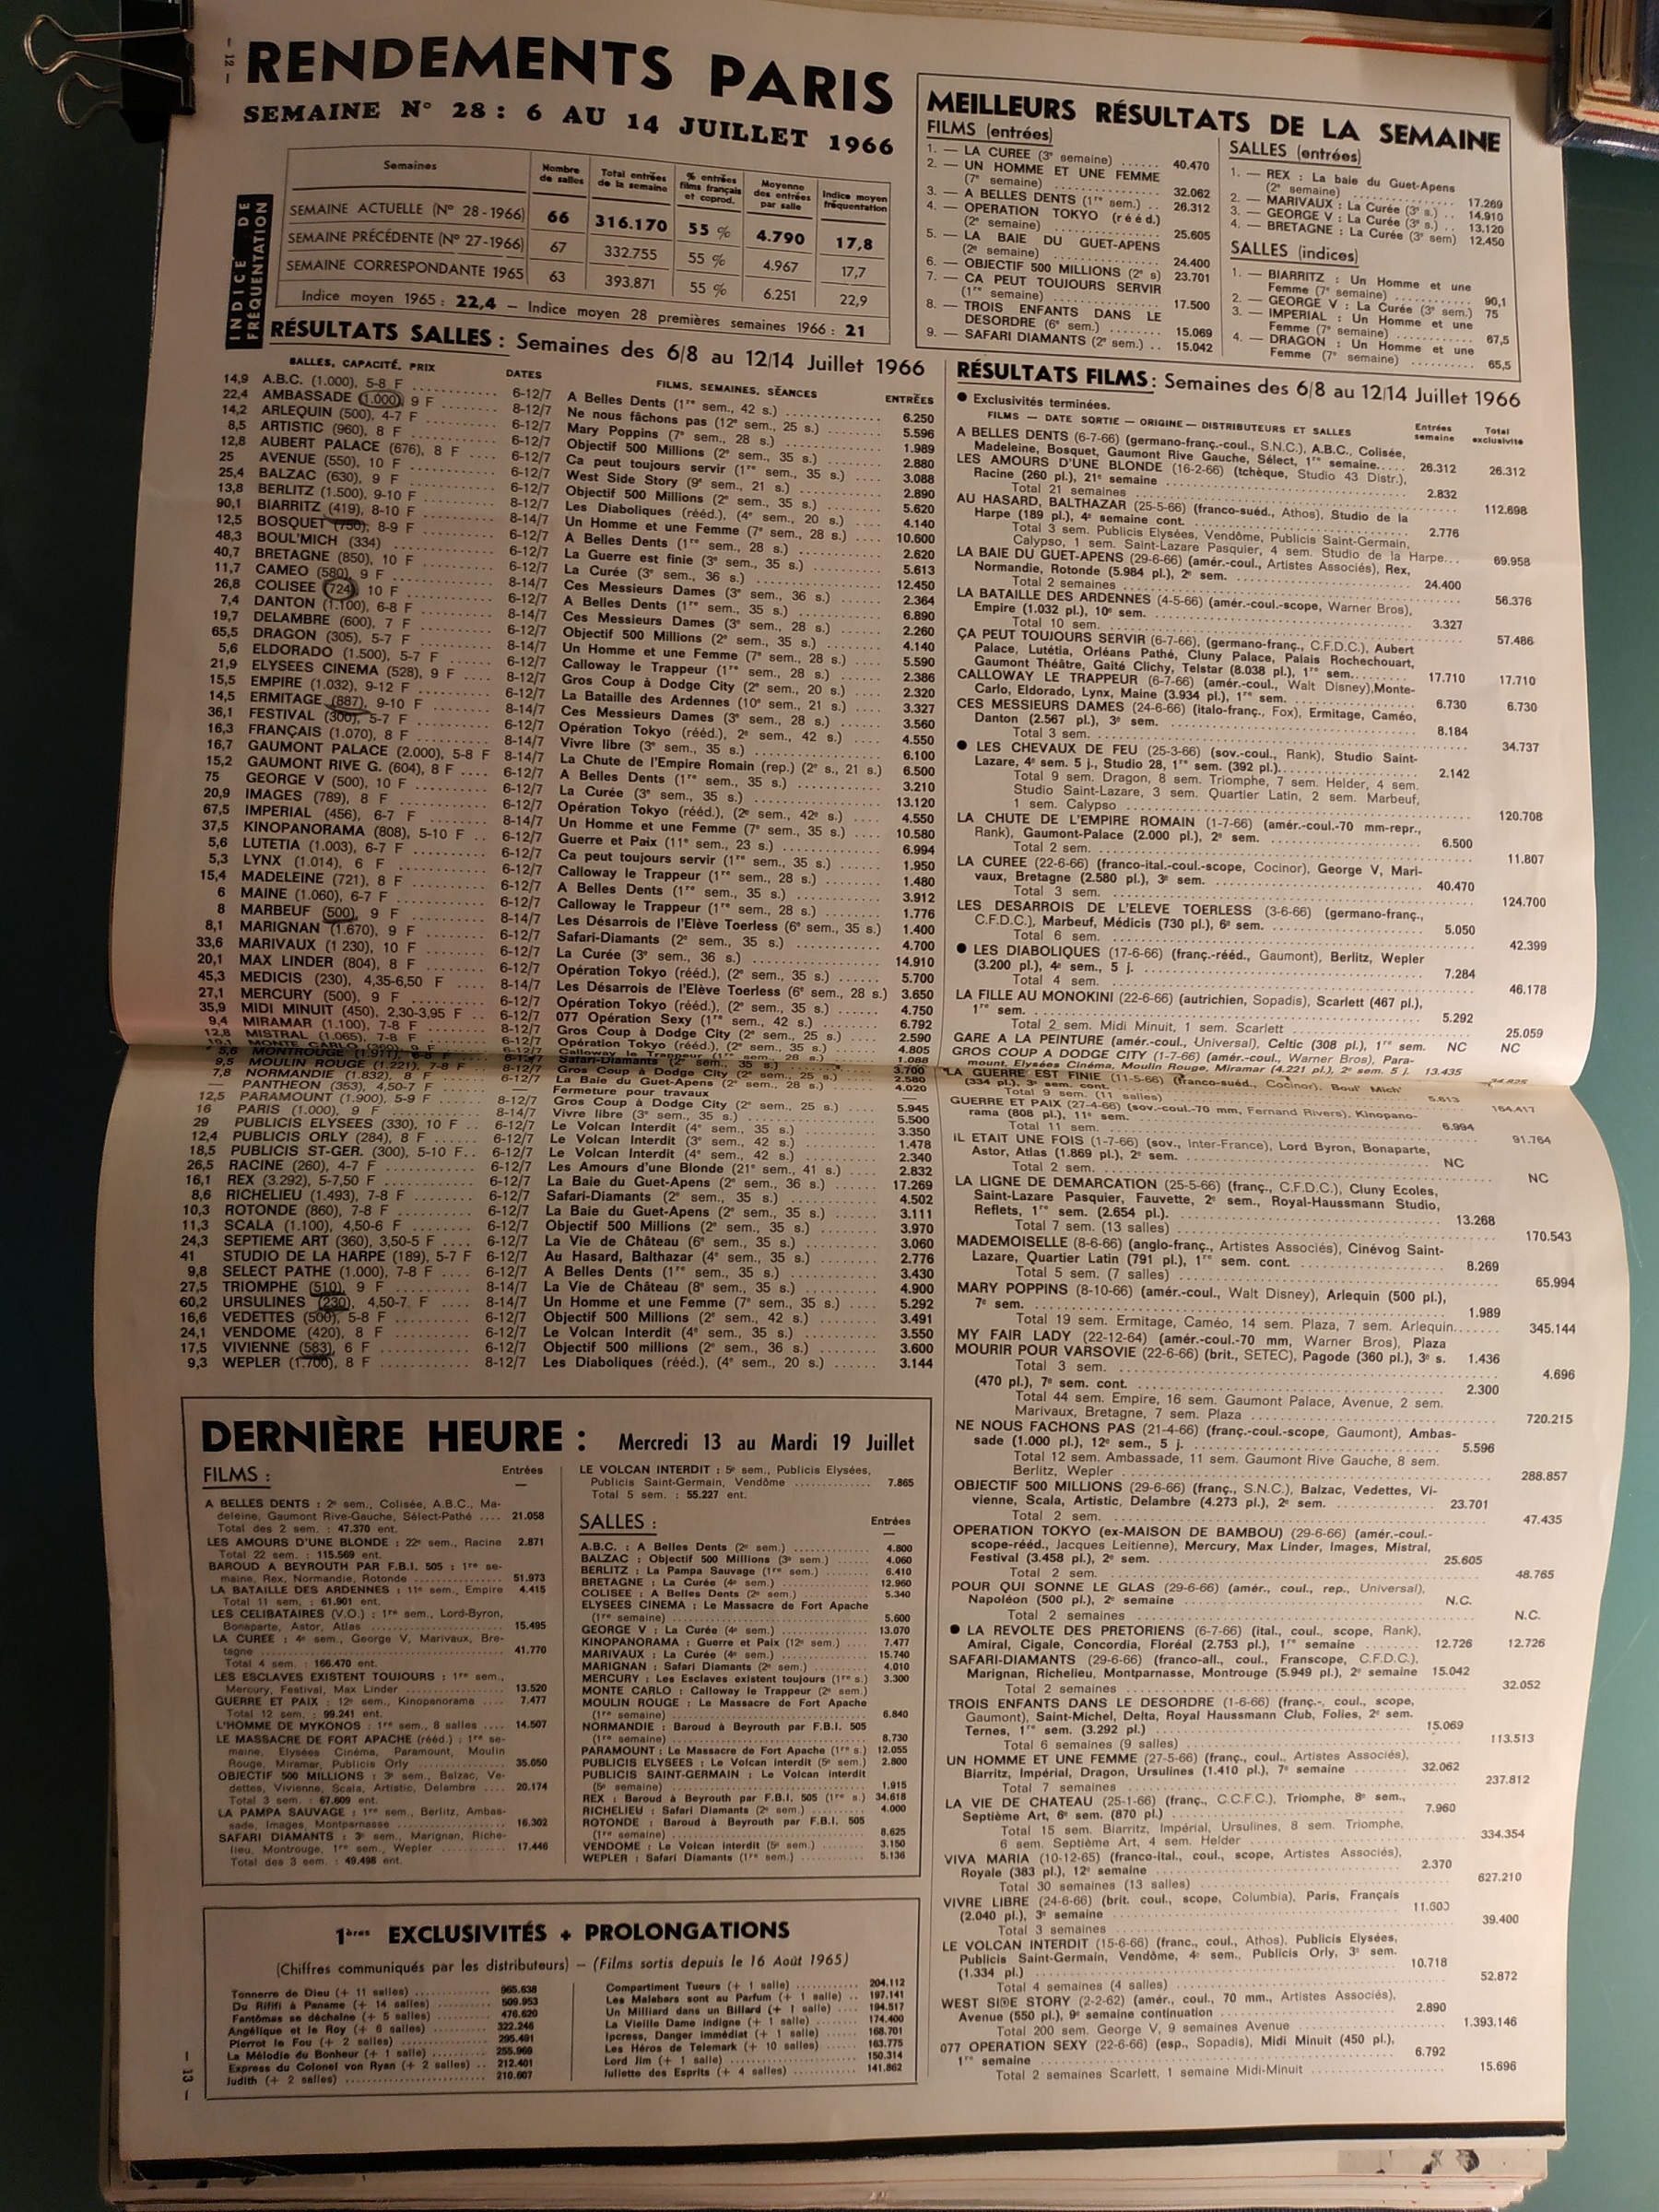 — 12 —
RENDEMENTS PARIS
SEMAINE N° 28 : 6 AU 14 JUILLET 1966
INDICE DE FRÉQUENTATION
Semaines | Nombre de salles | Total entrées de la semaine | % entrées films français et coprod. | Moyenne des entrées par salle | Indice moyen fréquentation
SEMAINE ACTUELLE (N° 28-1966) 66 316.170 55 % 4.790 17,8
SEMAINE PRÉCÉDENTE (N° 27-1966) 67 332.755 55 % 4.967 17,7
SEMAINE CORRESPONDANTE 1965 63 393.871 55 % 6.251 22,9
Indice moyen 1965 : 22,4 — Indice moyen 28 premières semaines 1966 : 21
MEILLEURS RÉSULTATS DE LA SEMAINE
FILMS (entrées)
1. — LA CUREE (3e semaine) ...... 40.470
2. — UN HOMME ET UNE FEMME
(7e semaine) .................. 32.062
3. — A BELLES DENTS (1re sem.) .. 26.312
4. — OPERATION TOKYO (rééd.)
(2e semaine) .................. 25.605
5. — LA BAIE DU GUET-APENS
(2e semaine) .................. 24.400
6. — OBJECTIF 500 MILLIONS (2e s) 23.701
7. — CA PEUT TOUJOURS SERVIR
(1re semaine) ................. 17.500
8. — TROIS ENFANTS DANS LE
DESORDRE (6e sem.) ........ 15.069
9. — SAFARI DIAMANTS (2e sem.) .. 15.042
SALLES (entrées)
1. — REX : La baie du Guet-Apens
(2e semaine) .................. 17.269
2. — MARIVAUX : La Curée (3e s.) .. 14.910
3. — GEORGE V : La Curée (3e s.) .. 13.120
4. — BRETAGNE : La Curée (3e sem) 12.450
SALLES (indices)
1. — BIARRITZ : Un Homme et une
Femme (7e semaine) .......... 90,1
2. — GEORGE V : La Curée (3e sem.) 75
3. — IMPERIAL : Un Homme et une
Femme (7e semaine) .......... 67,5
4. — DRAGON : Un Homme et une
Femme (7e semaine) .......... 65,5
RÉSULTATS SALLES : Semaines des 6/8 au 12/14 Juillet 1966
SALLES, CAPACITÉ, PRIX DATES FILMS, SEMAINES, SÉANCES ENTRÉES
14,9 A.B.C. (1.000), 5-8 F 6-12/7 A Belles Dents (1re sem., 42 s.) 6.250
22,4 AMBASSADE (1.000), 9 F 8-12/7 Ne nous fâchons pas (12e sem., 25 s.) 5.596
14,2 ARLEQUIN (500), 4-7 F 6-12/7 Mary Poppins (7e sem., 28 s.) 1.989
8,5 ARTISTIC (960), 8 F 6-12/7 Objectif 500 Millions (2e sem., 35 s.) 2.880
12,8 AUBERT PALACE (676), 8 F 6-12/7 Ca peut toujours servir (1re sem., 35 s.) 3.088
25 AVENUE (550), 10 F 6-12/7 West Side Story (9e sem., 21 s.) 2.890
25,4 BALZAC (630), 9 F 6-12/7 Objectif 500 Millions (2e sem., 35 s.) 5.620
13,8 BERLITZ (1.500), 9-10 F 8-12/7 Les Diaboliques (rééd.), (4e sem., 20 s.) 4.140
90,1 BIARRITZ (419), 8-10 F 8-14/7 Un Homme et une Femme (7e sem., 28 s.) 10.600
12,5 BOSQUET (750), 8-9 F 6-12/7 A Belles Dents (1re sem., 28 s.) 2.620
48,3 BOUL'MICH (334) 6-12/7 La Guerre est finie (3e sem., 35 s.) 5.613
40,7 BRETAGNE (850), 10 F 6-12/7 La Curée (3e sem., 36 s.) 12.450
11,7 CAMEO (580), 9 F 8-14/7 Ces Messieurs Dames (3e sem., 36 s.) 2.364
26,8 COLISEE (724), 10 F 6-12/7 A Belles Dents (1re sem., 35 s.) 6.890
7,4 DANTON (1.100), 6-8 F 8-14/7 Ces Messieurs Dames (3e sem., 28 s.) 2.260
19,7 DELAMBRE (600), 7 F 6-12/7 Objectif 500 Millions (2e sem., 35 s.) 4.140
65,5 DRAGON (305), 5-7 F 8-14/7 Un Homme et une Femme (7e sem., 28 s.) 5.590
5,6 ELDORADO (1.500), 5-7 F 6-12/7 Calloway le Trappeur (1re sem., 28 s.) 2.386
21,9 ELYSEES CINEMA (528), 9 F 8-12/7 Gros Coup à Dodge City (2e sem., 20 s.) 2.320
15,5 EMPIRE (1.032), 9-12 F 6-12/7 La Bataille des Ardennes (10e sem., 21 s.) 3.327
14,5 ERMITAGE (887), 9-10 F 8-14/7 Ces Messieurs Dames (3e sem., 28 s.) 3.560
36,1 FESTIVAL (300), 5-7 F 6-12/7 Opération Tokyo (rééd.), 2e sem., 42 s.) 4.550
16,3 FRANÇAIS (1.070), 8 F 8-14/7 Vivre libre (3e sem., 35 s.) 6.100
16,7 GAUMONT PALACE (2.000), 5-8 F 8-14/7 La Chute de l'Empire Romain (rep.) (2e s., 21 s.) 6.500
15,2 GAUMONT RIVE G. (604), 8 F 6-12/7 A Belles Dents (1re sem., 35 s.) 3.210
75 GEORGE V (500), 10 F 6-12/7 La Curée (3e sem., 35 s.) 13.120
20,9 IMAGES (789), 8 F 6-12/7 Opération Tokyo (rééd.), (2e sem., 42e s.) 4.550
67,5 IMPERIAL (456), 6-7 F 8-14/7 Un Homme et une Femme (7e sem., 35 s.) 10.580
37,5 KINOPANORAMA (808), 5-10 F 6-12/7 Guerre et Paix (11e sem., 23 s.) 6.994
5,6 LUTETIA (1.003), 6-7 F 6-12/7 Ca peut toujours servir (1re sem., 35 s.) 1.950
5,3 LYNX (1.014), 6 F 6-12/7 Calloway le Trappeur (1re sem., 28 s.) 1.480
15,4 MADELEINE (721), 8 F 6-12/7 A Belles Dents (1re sem., 35 s.) 3.912
6 MAINE (1.060), 6-7 F 6-12/7 Calloway le Trappeur (1re sem., 28 s.) 1.776
8 MARBEUF (500), 9 F 8-14/7 Les Désarrois de l'Elève Toerless (6e sem., 35 s.) 1.400
8,1 MARIGNAN (1.670), 9 F 6-12/7 Safari-Diamants (2e sem., 35 s.) 4.700
33,6 MARIVAUX (1 230), 10 F 6-12/7 La Curée (3e sem., 36 s.) 14.910
20,1 MAX LINDER (804), 8 F 6-12/7 Opération Tokyo (rééd.), (2e sem., 35 s.) 5.700
45,3 MEDICIS (230), 4,35-6,50 F 8-14/7 Les Désarrois de l'Elève Toerless (6e sem., 28 s.) 3.650
27,1 MERCURY (500), 9 F 6-12/7 Opération Tokyo (rééd.), (2e sem., 35 s.) 4.750
35,9 MIDI MINUIT (450), 2,30-3,95 F 6-12/7 077 Opération Sexy (1re sem., 42 s.) 6.792
9,4 MIRAMAR (1.100), 7-8 F 8-12/7 Gros Coup à Dodge City (2e sem., 25 s.) 2.590
12,8 MISTRAL (1.065), 7-8 F 6-12/7 Opération Tokyo (rééd.), (2e sem., 35 s.) 4.805
10,1 MONTE CARLO (360), 9 F 6-12/7 Calloway le Trappeur (1re sem., 28 s.) 1.088
5,6 MONTROUGE (1.911), 6-8 F 6-12/7 Safari-Diamants (2e sem., 35 s.) 3.700
9,5 MOULIN ROUGE (1.221), 7-8 F 8-12/7 Gros Coup à Dodge City (2e sem., 25 s.) 2.580
7,8 NORMANDIE (1.832), 8 F 6-12/7 La Baie du Guet-Apens (2e sem., 28 s.) 4.020
— PANTHEON (353), 4,50-7 F Fermeture pour travaux —
12,5 PARAMOUNT (1.900), 5-9 F 8-12/7 Gros Coup à Dodge City (2e sem., 25 s.) 5.945
16 PARIS (1.000), 9 F 8-14/7 Vivre libre (3e sem., 35 s.) 5.500
29 PUBLICIS ELYSEES (330), 10 F 6-12/7 Le Volcan Interdit (4e sem., 35 s.) 3.350
12,4 PUBLICIS ORLY (284), 8 F 6-12/7 Le Volcan Interdit (3e sem., 42 s.) 1.478
18,5 PUBLICIS ST-GER. (300), 5-10 F 6-12/7 Le Volcan Interdit (4e sem., 42 s.) 2.340
26,5 RACINE (260), 4-7 F 6-12/7 Les Amours d'une Blonde (21e sem., 41 s.) 2.832
16,1 REX (3.292), 5-7,50 F 6-12/7 La Baie du Guet-Apens (2e sem., 36 s.) 17.269
8,6 RICHELIEU (1.493), 7-8 F 6-12/7 Safari-Diamants (2e sem., 35 s.) 4.502
10,3 ROTONDE (860), 7-8 F 6-12/7 La Baie du Guet-Apens (2e sem., 35 s.) 3.111
11,3 SCALA (1.100), 4,50-6 F 6-12/7 Objectif 500 Millions (2e sem., 35 s.) 3.970
24,3 SEPTIEME ART (360), 3,50-5 F 6-12/7 La Vie de Château (6e sem., 35 s.) 3.060
41 STUDIO DE LA HARPE (189), 5-7 F 6-12/7 Au Hasard, Balthazar (4e sem., 35 s.) 2.776
9,8 SELECT PATHE (1.000), 7-8 F 6-12/7 A Belles Dents (1re sem., 35 s.) 3.430
27,5 TRIOMPHE (510), 9 F 8-14/7 La Vie de Château (8e sem., 35 s.) 4.900
60,2 URSULINES (230), 4,50-7 F 8-14/7 Un Homme et une Femme (7e sem., 35 s.) 5.292
16,6 VEDETTES (500), 5-8 F 6-12/7 Objectif 500 Millions (2e sem., 42 s.) 3.491
24,1 VENDOME (420), 8 F 6-12/7 Le Volcan Interdit (4e sem., 35 s.) 3.550
17,5 VIVIENNE (583), 6 F 6-12/7 Objectif 500 millions (2e sem., 36 s.) 3.600
9,3 WEPLER (1.700), 8 F 8-12/7 Les Diaboliques (rééd.), (4e sem., 20 s.) 3.144
DERNIÈRE HEURE : Mercredi 13 au Mardi 19 Juillet
FILMS : Entrées
A BELLES DENTS : 2e sem., Colisée, A.B.C., Ma-
deleine, Gaumont Rive-Gauche, Sélect-Pathé .... 21.058
Total des 2 sem. : 47.370 ent.
LES AMOURS D'UNE BLONDE : 22e sem., Racine 2.871
Total 22 sem. : 115.569 ent.
BAROUD A BEYROUTH PAR F.B.I. 505 : 1re se-
maine, Rex, Normandie, Rotonde .......... 51.973
LA BATAILLE DES ARDENNES : 11e sem., Empire 4.415
Total 11 sem. : 61.901 ent.
LES CELIBATAIRES (V.O.) : 1re sem., Lord-Byron,
Bonaparte, Astor, Atlas .......... 15.495
LA CUREE : 4e sem., George V, Marivaux, Bre-
tagne .......... 41.770
Total 4 sem. : 166.470 ent.
LES ESCLAVES EXISTENT TOUJOURS : 1re sem.,
Mercury, Festival, Max Linder .......... 13.520
GUERRE ET PAIX : 12e sem., Kinopanorama .... 7.477
Total 12 sem. : 99.241 ent.
L'HOMME DE MYKONOS : 1re sem., 8 salles .... 14.507
LE MASSACRE DE FORT APACHE (rééd.) : 1re se-
maine, Elysées Cinéma, Paramount, Moulin
Rouge, Miramar, Publicis Orly .......... 35.050
OBJECTIF 500 MILLIONS : 3e sem., Balzac, Ve-
dettes, Vivienne, Scala, Artistic, Delambre .... 20.174
Total 3 sem. : 67.609 ent.
LA PAMPA SAUVAGE : 1re sem., Berlitz, Ambas-
sade, Images, Montparnasse .......... 16.302
SAFARI DIAMANTS : 3e sem., Marignan, Riche-
lieu, Montrouge, 1re sem., Wepler .......... 17.446
Total des 3 sem. : 49.498 ent.
LE VOLCAN INTERDIT : 5e sem., Publicis Elysées,
Publicis Saint-Germain, Vendôme .......... 7.865
Total 5 sem. : 55.227 ent.
SALLES : Entrées
A.B.C. : A Belles Dents (2e sem.) .......... 4.800
BALZAC : Objectif 500 Millions (3e sem.) .... 4.060
BERLITZ : La Pampa Sauvage (1re sem.) .... 6.410
BRETAGNE : La Curée (4e sem.) .......... 12.960
COLISEE : A Belles Dents (2e sem.) .......... 5.340
ELYSEES CINEMA : Le Massacre de Fort Apache
(1re semaine) .......... 5.600
GEORGE V : La Curée (4e sem.) .......... 13.070
KINOPANORAMA : Guerre et Paix (12e sem.) .... 7.477
MARIVAUX : La Curée (4e sem.) .......... 15.740
MARIGNAN : Safari Diamants (2e sem.) .......... 4.010
MERCURY : Les Esclaves existent toujours (1re s.) 3.300
MONTE CARLO : Calloway le Trappeur (2e sem.)
MOULIN ROUGE : Le Massacre de Fort Apache
(1re semaine) .......... 6.840
NORMANDIE : Baroud à Beyrouth par F.B.I. 505
(1re semaine) .......... 8.730
PARAMOUNT : Le Massacre de Fort Apache (1re s.) 12.055
PUBLICIS ELYSEES : Le Volcan Interdit (5e sem.) 2.800
PUBLICIS SAINT-GERMAIN : Le Volcan Interdit
(5e semaine) .......... 1.915
REX : Baroud à Beyrouth par F.B.I. 505 (1re s.) 34.618
RICHELIEU : Safari Diamants (2e sem.) .......... 4.000
ROTONDE : Baroud à Beyrouth par F.B.I. 505
(1re semaine) .......... 8.625
VENDOME : Le Volcan interdit (5e sem.) .......... 3.150
WEPLER : Safari Diamants (1re sem.) .......... 5.136
1ères EXCLUSIVITÉS + PROLONGATIONS
(Chiffres communiqués par les distributeurs) — (Films sortis depuis le 16 Août 1965)
Tonnerre de Dieu (+ 11 salles) .......... 965.638
Du Rififi à Paname (+ 14 salles) .......... 509.953
Fantômas se déchaîne (+ 5 salles) .......... 476.620
Angélique et le Roy (+ 6 salles) .......... 322.246
Pierrot le Fou (+ 2 salles) .......... 295.491
La Mélodie du Bonheur (+ 1 salle) .......... 255.969
Express du Colonel von Ryan (+ 2 salles) .. 212.401
Judith (+ 2 salles) .......... 210.607
Compartiment Tueurs (+ 1 salle) .......... 204.112
Les Malabars sont au Parfum (+ 1 salle) .. 197.141
Un Milliard dans un Billard (+ 1 salle) .. 194.517
La Vieille Dame Indigne (+ 1 salle) .......... 174.400
Ipcress, Danger immédiat (+ 1 salle) .......... 168.701
Les Héros de Telemark (+ 10 salles) .......... 163.775
Lord Jim (+ 1 salle) .......... 150.314
Juliette des Esprits (+ 4 salles) .......... 141.862
— 13 —
RÉSULTATS FILMS : Semaines des 6/8 au 12/14 Juillet 1966
● Exclusivités terminées.
FILMS — DATE SORTIE — ORIGINE — DISTRIBUTEURS ET SALLES Entrées semaine Total exclusivité
A BELLES DENTS (6-7-66) (germano-franç.-coul., S.N.C.), A.B.C., Colisée,
Madeleine, Bosquet, Gaumont Rive Gauche, Sélect, 1re semaine..... 26.312 26.312
LES AMOURS D'UNE BLONDE (16-2-66) (tchèque, Studio 43 Distr.),
Racine (260 pl.), 21e semaine .......... 2.832
Total 21 semaines .......... 112.698
AU HASARD, BALTHAZAR (25-5-66) (franco-suéd., Athos), Studio de la
Harpe (189 pl.), 4e semaine cont. .......... 2.776
Total 3 sem. Publicis Elysées, Vendôme, Publicis Saint-Germain,
Calypso, 1 sem. Saint-Lazare Pasquier, 4 sem. Studio de la Harpe... 69.958
LA BAIE DU GUET-APENS (29-6-66) (amér.-coul., Artistes Associés), Rex,
Normandie, Rotonde (5.984 pl.), 2e sem. .......... 24.400
Total 2 semaines .......... 56.376
LA BATAILLE DES ARDENNES (4-5-66) (amér.-coul.-scope, Warner Bros),
Empire (1.032 pl.), 10e sem. .......... 3.327
Total 10 sem. .......... 57.486
ÇA PEUT TOUJOURS SERVIR (6-7-66), (germano-franç., C.F.D.C.), Aubert
Palace, Lutétia, Orléans Pathé, Cluny Palace, Palais Rochechouart,
Gaumont Théâtre, Gaité Clichy, Telstar (8.038 pl.), 1re sem....... 17.710 17.710
CALLOWAY LE TRAPPEUR (6-7-66) (amér.-coul., Walt Disney),Monte-
Carlo, Eldorado, Lynx, Maine (3.934 pl.), 1re sem. .......... 6.730 6.730
CES MESSIEURS DAMES (24-6-66) (italo-franç., Fox), Ermitage, Caméo,
Danton (2.567 pl.), 3e sem. .......... 8.184
Total 3 sem. .......... 34.737
● LES CHEVAUX DE FEU (25-3-66) (sov.-coul., Rank), Studio Saint-
Lazare, 4e sem. 5 j., Studio 28, 1re sem. (392 pl.).......... 2.142
Total 9 sem. Dragon, 8 sem. Triomphe, 7 sem. Helder, 4 sem.
Studio Saint-Lazare, 3 sem. Quartier Latin, 2 sem. Marbeuf,
1 sem. Calypso .......... 120.708
LA CHUTE DE L'EMPIRE ROMAIN (1-7-66) (amér.-coul.-70 mm-repr.,
Rank), Gaumont-Palace (2.000 pl.), 2e sem. .......... 6.500
Total 2 sem. .......... 11.807
LA CUREE (22-6-66) (franco-ital.-coul.-scope, Cocinor), George V, Mari-
vaux, Bretagne (2.580 pl.), 3e sem. .......... 40.470
Total 3 sem. .......... 124.700
LES DESARROIS DE L'ELEVE TOERLESS (3-6-66) (germano-franç.,
C.F.D.C.), Marbeuf, Médicis (730 pl.), 6e sem. .......... 5.050
Total 6 sem. .......... 42.399
● LES DIABOLIQUES (17-6-66) (franç.-rééd., Gaumont), Berlitz, Wepler
(3.200 pl.), 4e sem., 5 j. .......... 7.284
Total 4 sem. .......... 46.178
LA FILLE AU MONOKINI (22-6-66) (autrichien, Sopadis), Scarlett (467 pl.),
1re sem. .......... 5.292
Total 2 sem. Midi Minuit, 1 sem. Scarlett .......... 25.059
GARE A LA PEINTURE (amér.-coul., Universal), Celtic (308 pl.), 1re sem. NC NC
GROS COUP A DODGE CITY (1-7-66) (amér.-coul., Warner Bros), Para-
mount, Elysées Cinéma, Moulin Rouge, Miramar (4.221 pl.), 2e sem. 5 j. 13.435 34.825
LA GUERRE EST FINIE (11-5-66) (franco-suéd., Cocinor), Boul' Mich'
(334 pl.), 3e sem. cont. .......... 5.613
Total 9 sem. (11 salles) .......... 164.417
GUERRE ET PAIX (27-4-66) (sov.-coul.-70 mm, Fernand Rivers), Kinopano-
rama (808 pl.), 11e sem. .......... 6.994
Total 11 sem. .......... 91.764
IL ETAIT UNE FOIS (1-7-66) (sov., Inter-France), Lord Byron, Bonaparte,
Astor, Atlas (1.869 pl.), 2e sem. .......... NC
Total 2 sem. .......... NC
LA LIGNE DE DEMARCATION (25-5-66) (franç., C.F.D.C.), Cluny Ecoles,
Saint-Lazare Pasquier, Fauvette, 2e sem., Royal-Haussmann Studio,
Reflets, 1re sem. (2.654 pl.). .......... 13.268
Total 7 sem. (13 salles) .......... 170.543
MADEMOISELLE (8-6-66) (anglo-franç., Artistes Associés), Cinévog Saint-
Lazare, Quartier Latin (791 pl.), 1re sem. cont. .......... 8.269
Total 5 sem. (7 salles) .......... 65.994
MARY POPPINS (8-10-66) (amér.-coul., Walt Disney), Arlequin (500 pl.),
7e sem. .......... 1.989
Total 19 sem. Ermitage, Caméo, 14 sem. Plaza, 7 sem. Arlequin...... 345.144
MY FAIR LADY (22-12-64) (amér.-coul.-70 mm, Warner Bros), Plaza
MOURIR POUR VARSOVIE (22-6-66) (brit., SETEC), Pagode (360 pl.), 3e s. 1.436
Total 3 sem. .......... 4.696
(470 pl.), 7e sem. cont. .......... 2.300
Total 44 sem. Empire, 16 sem. Gaumont Palace, Avenue, 2 sem.
Marivaux, Bretagne, 7 sem. Plaza .......... 720.215
NE NOUS FACHONS PAS (21-4-66) (franç.-coul.-scope, Gaumont), Ambas-
sade (1.000 pl.), 12e sem., 5 j. .......... 5.596
Total 12 sem. Ambassade, 11 sem. Gaumont Rive Gauche, 8 sem.
Berlitz, Wepler .......... 288.857
OBJECTIF 500 MILLIONS (29-6-66) (franç., S.N.C.), Balzac, Vedettes, Vi-
vienne, Scala, Artistic, Delambre (4.273 pl.), 2e sem. .......... 23.701
Total 2 sem. .......... 47.435
OPERATION TOKYO (ex-MAISON DE BAMBOU) (29-6-66) (amér.-coul.-
scope-rééd., Jacques Leitienne), Mercury, Max Linder, Images, Mistral,
Festival (3.458 pl.), 2e sem. .......... 25.605
Total 2 sem. .......... 48.765
POUR QUI SONNE LE GLAS (29-6-66) (amér., coul., rep., Universal),
Napoléon (500 pl.), 2e semaine .......... N.C.
Total 2 semaines .......... N.C.
● LA REVOLTE DES PRETORIENS (6-7-66) (ital., coul., scope, Rank),
Amiral, Cigale, Concordia, Floréal (2.753 pl.), 1re semaine .......... 12.726 12.726
SAFARI-DIAMANTS (29-6-66) (franco-all., coul., Franscope, C.F.D.C.),
Marignan, Richelieu, Montparnasse, Montrouge (5.949 pl.), 2e semaine 15.042
Total 2 semaines .......... 32.052
TROIS ENFANTS DANS LE DESORDRE (1-6-66) (franç.-, coul., scope,
Gaumont), Saint-Michel, Delta, Royal Haussmann Club, Folies, 2e sem.
Ternes, 1re sem. (3.292 pl.) .......... 15.069
Total 6 semaines (9 salles) .......... 113.513
UN HOMME ET UNE FEMME (27-5-66) (franç., coul., Artistes Associés),
Biarritz, Impérial, Dragon, Ursulines (1.410 pl.), 7e semaine .......... 32.062
Total 7 semaines .......... 237.812
LA VIE DE CHATEAU (25-1-66) (franç., C.C.F.C.), Triomphe, 8e sem.,
Septième Art, 6e sem. (870 pl.) .......... 7.960
Total 15 sem. Biarritz, Impérial, Ursulines, 8 sem. Triomphe,
6 sem. Septième Art, 4 sem. Helder .......... 334.354
VIVA MARIA (10-12-65) (franco-ital., coul., scope, Artistes Associés),
Royale (383 pl.), 12e semaine .......... 2.370
Total 30 semaines (13 salles) .......... 627.210
VIVRE LIBRE (24-6-66) (brit. coul., scope, Columbia), Paris, Français
(2.040 pl.), 3e semaine .......... 11.600
Total 3 semaines .......... 39.400
LE VOLCAN INTERDIT (15-6-66) (franc., coul., Athos), Publicis Elysées,
Publicis Saint-Germain, Vendôme, 4e sem., Publicis Orly, 3e sem.
(1.334 pl.) .......... 10.718
Total 4 semaines (4 salles) .......... 52.872
WEST SIDE STORY (2-2-62) (amér., coul., 70 mm., Artistes Associés),
Avenue (550 pl.), 9e semaine continuation .......... 2.890
Total 200 sem. George V, 9 semaines Avenue .......... 1.393.146
077 OPERATION SEXY (22-6-66) (esp., Sopadis), Midi Minuit (450 pl.),
1re semaine .......... 6.792
Total 2 semaines Scarlett, 1 semaine Midi-Minuit .......... 15.696